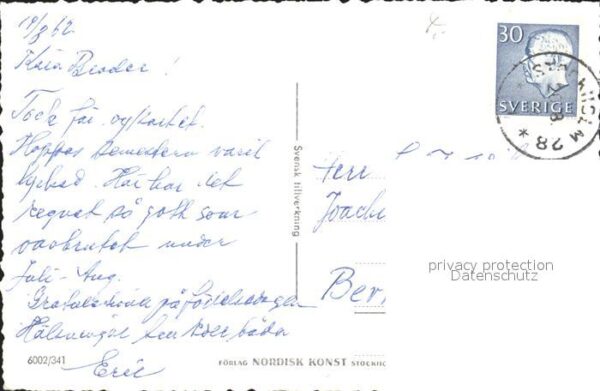 19/8 62
Kära Broder!
Tack för vykortet.
Hoppas semestern varit
lyckad. Här har det
regnat så gott som
oavbrutet under
Juli-Aug.
Gratulerar på födelsedagen
Hälsningar
Eric
6002/341
Svensk tillverkning
FÖRLAG NORDISK KONST STOCKHO
30
SVERIGE
28
Herr
Joach
Ber
privacy protection
Datenschutz